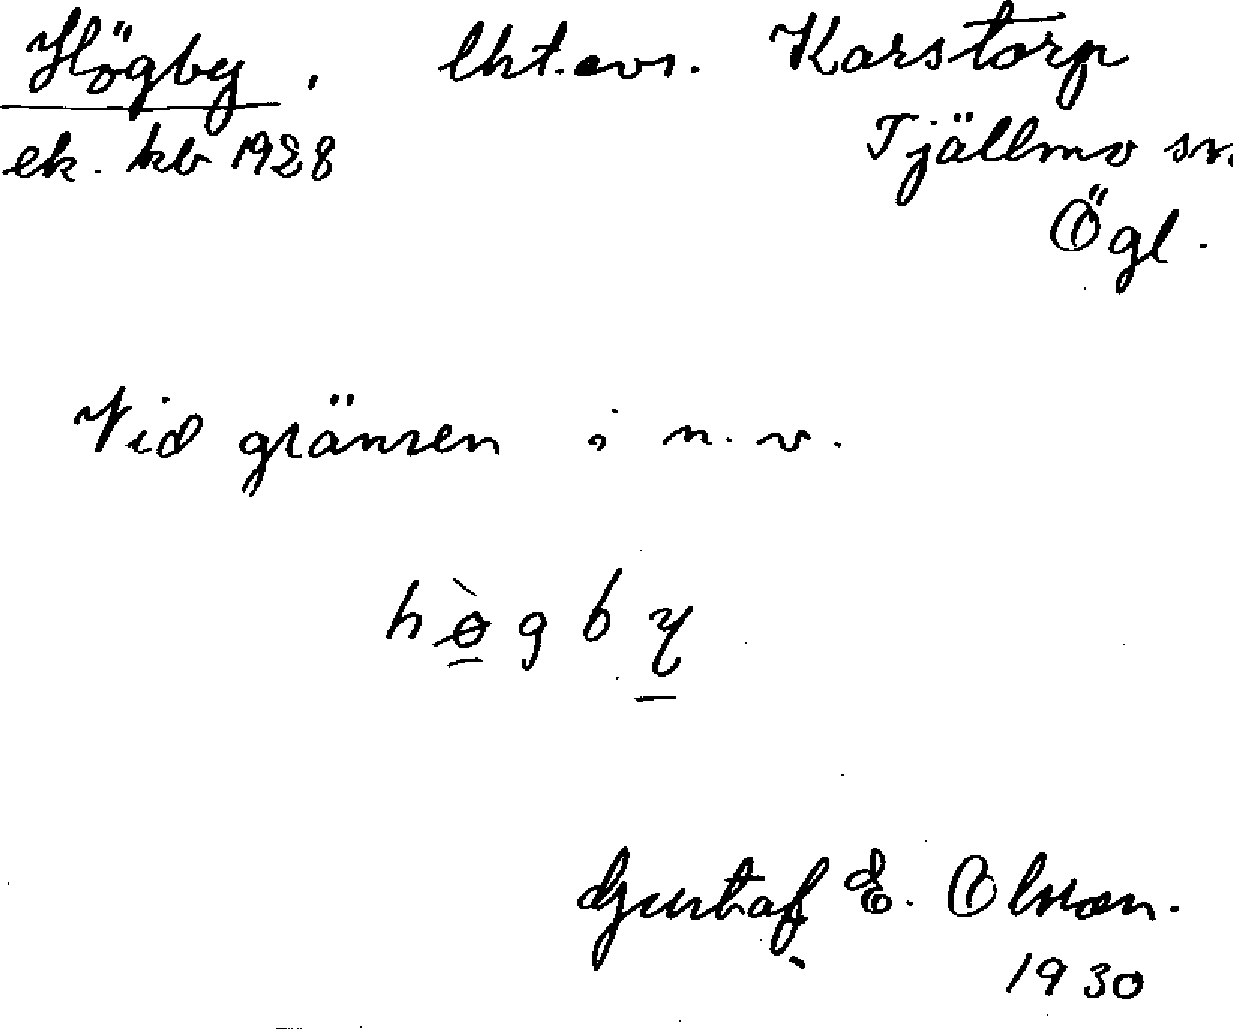 Högby. lht.avs. Karstorp
ek. kb 1928 Tjällmo sn.
Ögl.
Vid gränsen i n.v.
hø̀gby
Gustaf E. Olsson.
1930